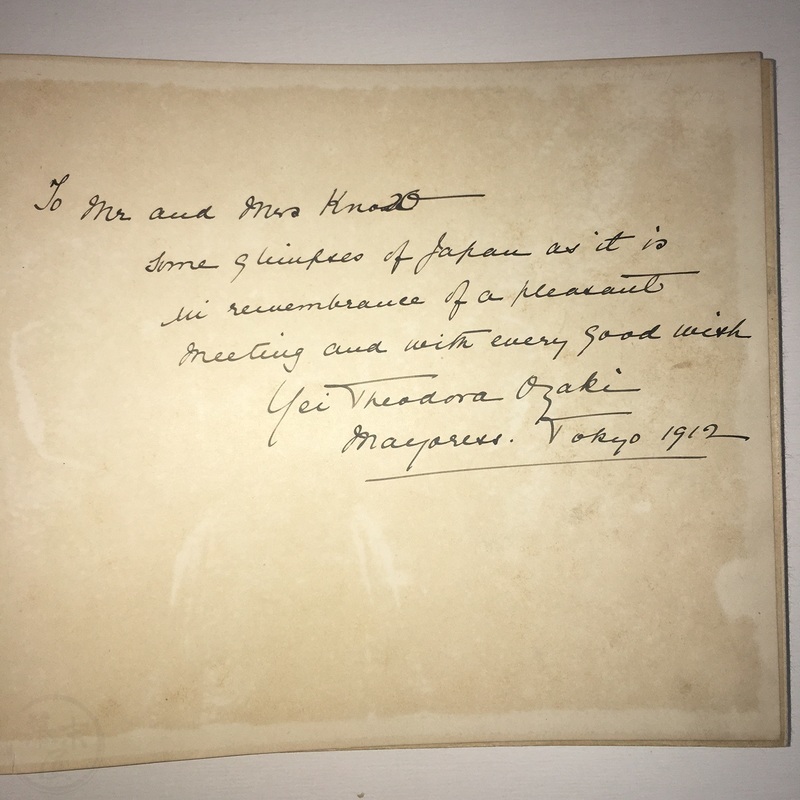 To Mr and Mrs Knox
Some glimpses of Japan as it is
in remembrance of a pleasant
Meeting and with every good wish
Yei Theodora Ozaki
Mayoress. Tokyo 1912